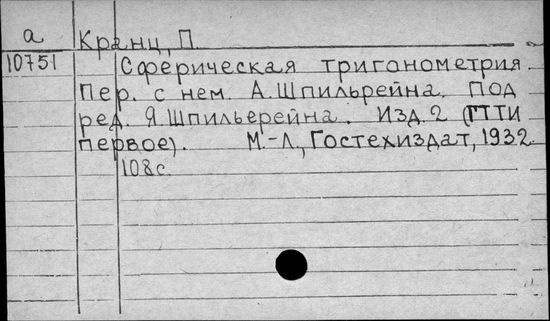 а Кранц, П.
10751 Сферическая тригонометрия.
Пер. с нем. А. Шпильрейна. Под
ред. Я. Шпильерейна. Изд. 2 (ГТТИ
первое). М.-Л., Гостехиздат, 1932.
108с.